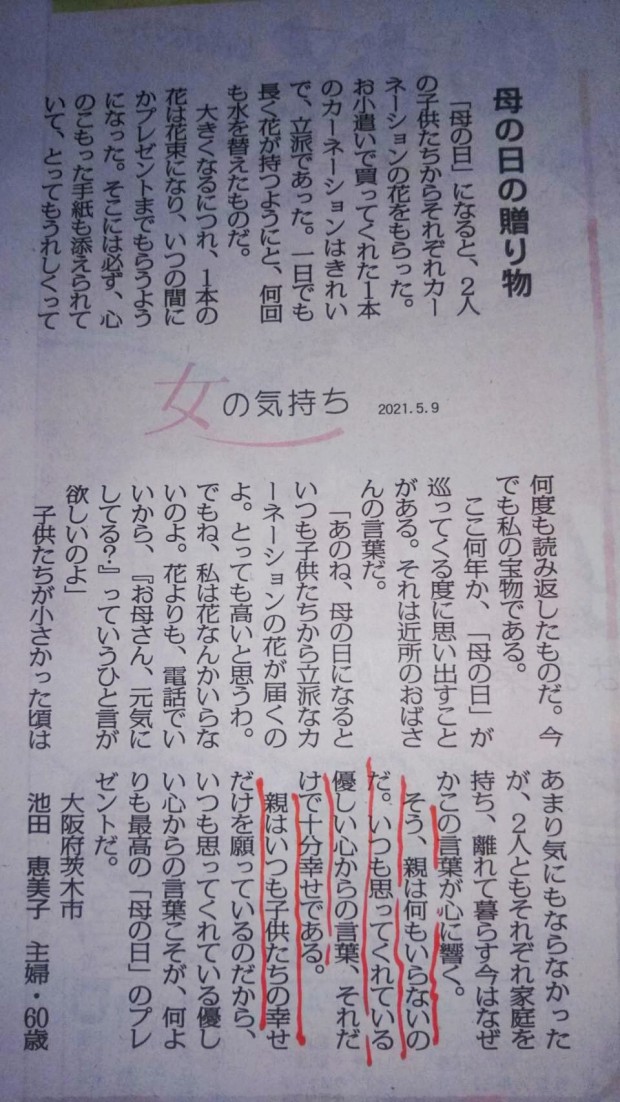 母の日の贈り物
「母の日」になると、2人
の子供たちからそれぞれカー
ネーションの花をもらった。
お小遣いで買ってくれた1本
のカーネーションはきれい
で、立派であった。一日でも
長く花が持つようにと、何回
も水を替えたものだ。
大きくなるにつれ、1本の
花は花束になり、いつの間に
かプレゼントまでもらうよう
になった。そこには必ず、心
のこもった手紙も添えられて
いて、とってもうれしくって
女の気持ち 2021.5.9
何度も読み返したものだ。今
でも私の宝物である。
ここ何年か、「母の日」が
巡ってくる度に思い出すこと
がある。それは近所のおばさ
んの言葉だ。
「あのね、母の日になると
いつも子供たちから立派なカ
ーネーションの花が届くの
よ。とっても高いと思うわ。
でもね、私は花なんかいらな
いのよ。花よりも、電話でい
いから、『お母さん、元気に
してる?』っていうひと言が
欲しいのよ」
子供たちが小さかった頃は
あまり気にもならなかった
が、2人ともそれぞれ家庭を
持ち、離れて暮らす今はなぜ
かこの言葉が心に響く。
そう、親は何もいらないの
だ。いつも思ってくれている
優しい心からの言葉、それだ
けで十分幸せである。
親はいつも子供たちの幸せ
だけを願っているのだから、
いつも思ってくれている優し
い心からの言葉こそが、何よ
りも最高の「母の日」のプレ
ゼントだ。
大阪府茨木市
池田 恵美子 主婦・60歳